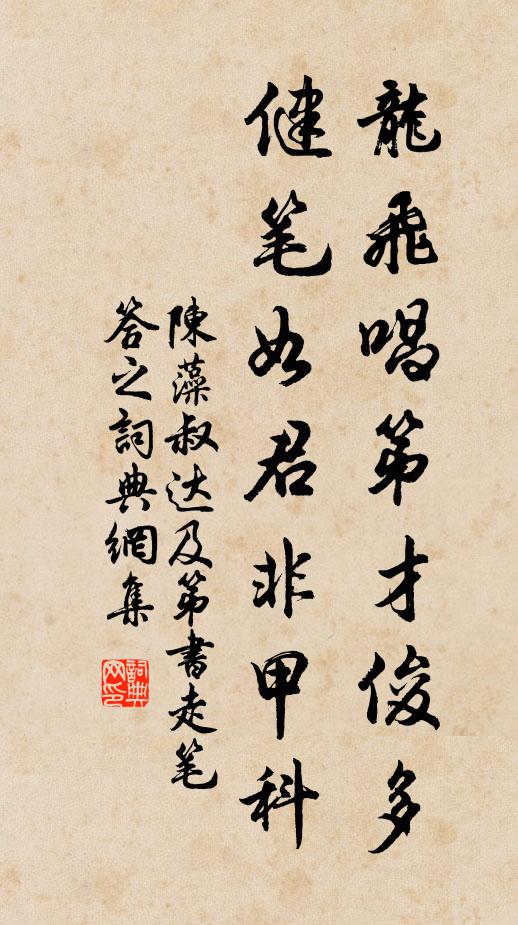 龍飛唱第才俊多
健笔如君非甲科
陳藻叔达及第書走笔
答之詞典網集
詞典
网印